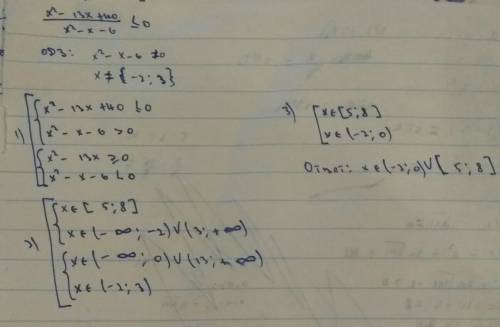 x² - 13x + 40 / x² - x - 6 ≤ 0
ОДЗ: x² - x - 6 ≠ 0
x ≠ {-2; 3}
1) [ { x² - 13x + 40 ≤ 0
{ x² - x - 6 > 0
{ x² - 13x ≥ 0
{ x² - x - 6 < 0
2) [ { x ∈ [5; 8]
{ x ∈ (-∞; -2) ∪ (3; +∞)
{ x ∈ (-∞; 0) ∪ (13; +∞)
{ x ∈ (-2; 3)
3) [ x ∈ [5; 8]
x ∈ (-2; 0)
Ответ: x ∈ (-2; 0) ∪ [5; 8]